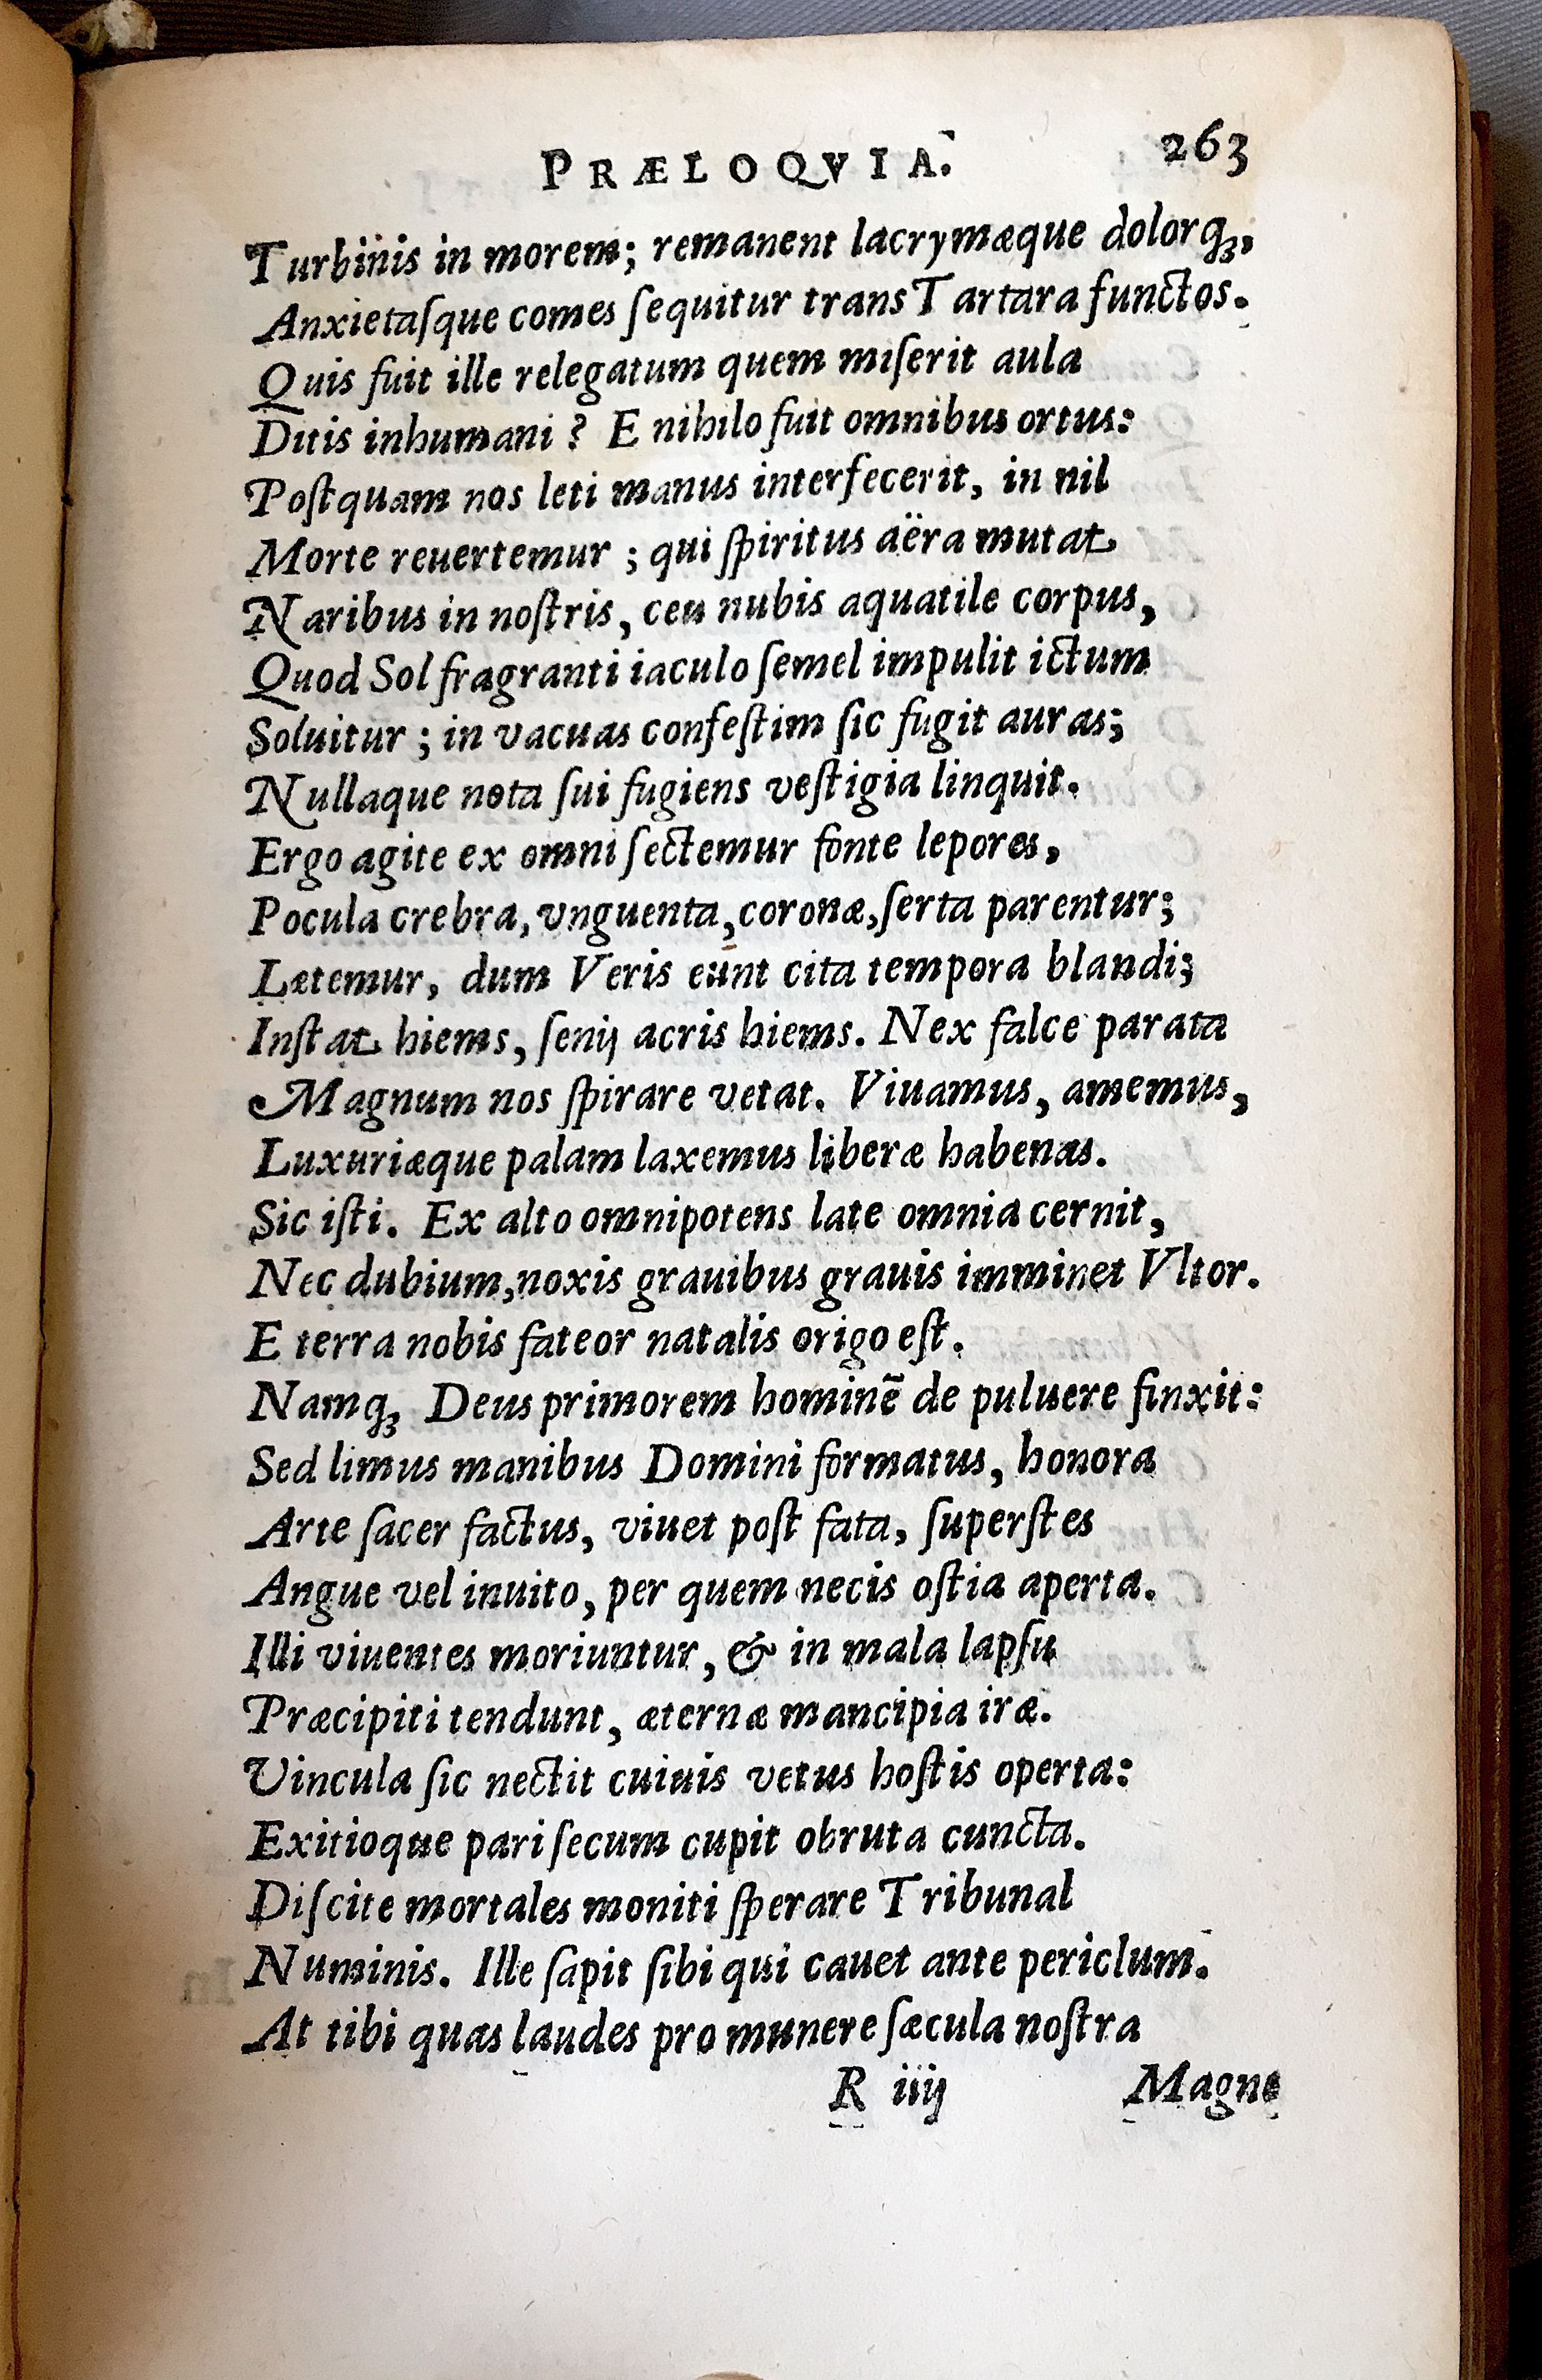 PRÆLOQVIA. 263
Turbinis in morem; remanent lacrymæque dolorqꝫ,
Anxietaſque comes ſequitur trans Tartara functos.
Quis fuit ille relegatum quem miſerit aula
Ditis inhumani? E nihilo fuit omnibus ortus:
Poſtquam nos leti manus interfecerit, in nil
Morte reuertemur; qui ſpiritus aëra mutat
Naribus in noſtris, ceu nubis aquatile corpus,
Quod Sol fragranti iaculo ſemel impulit ictum
Soluitur; in vacuas confeſtim ſic fugit auras;
Nullaque nota ſui fugiens veſtigia linquit.
Ergo agite ex omni ſectemur fonte lepores,
Pocula crebra, vnguenta, coronæ, ſerta parentur;
Lætemur, dum Veris eunt cita tempora blandi;
Inſtat hiems, ſenij acris hiems. Nex falce parata
Magnum nos ſpirare vetat. Viuamus, amemus,
Luxuriæque palam laxemus liberæ habenas.
Sic iſti. Ex alto omnipotens late omnia cernit,
Nec dubium, noxis grauibus grauis imminet Vltor.
E terra nobis fateor natalis origo eſt.
Namqꝫ Deus primorem hominē de puluere finxit:
Sed limus manibus Domini formatus, honora
Arte ſacer factus, viuet poſt fata, ſuperſtes
Angue vel inuito, per quem necis oſtia aperta.
Illi viuentes moriuntur, & in mala lapſu
Præcipiti tendunt, æternæ mancipia iræ.
Vincula ſic nectit cuiuis vetus hoſtis operta:
Exitioque pari ſecum cupit obruta cuncta.
Diſcite mortales moniti ſperare Tribunal
Numinis. Ille ſapit ſibi qui cauet ante periclum.
At tibi quas laudes pro munere ſæcula noſtra
R iiij Magne